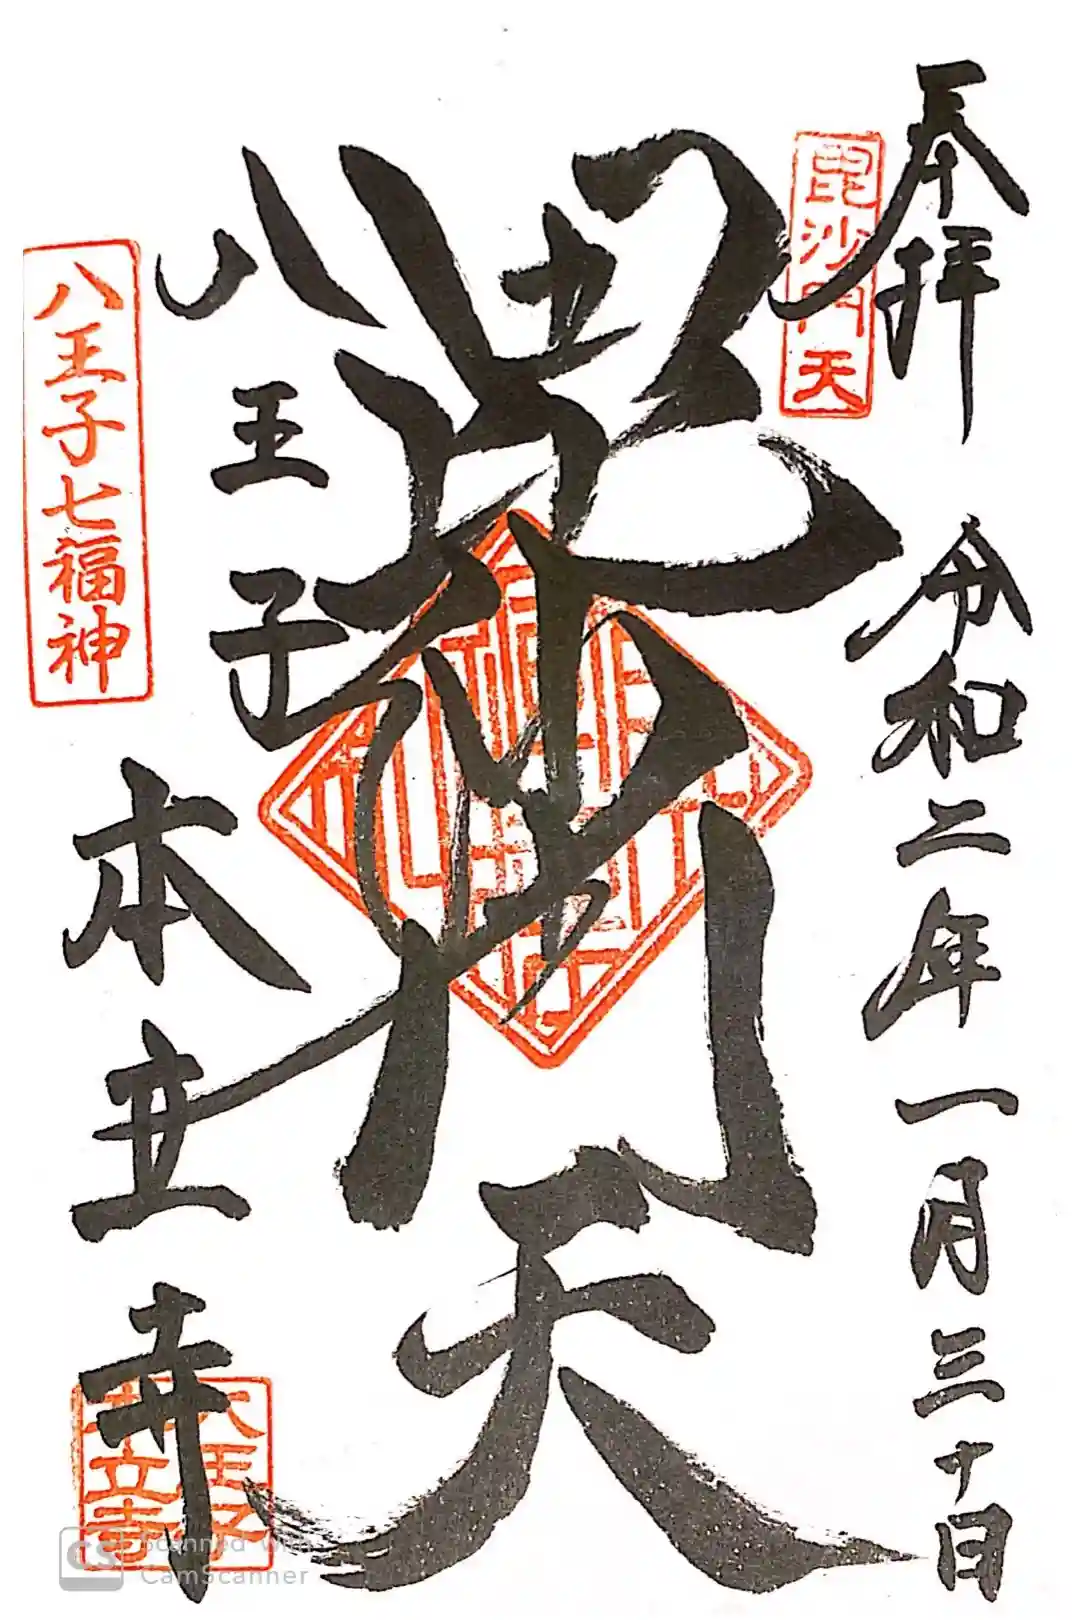 奉拝
令和二年一月三十日
毘沙門天
毘沙門天
八王子
本立寺
八王子七福神
八王子
本立寺
Scanned with
CamScanner